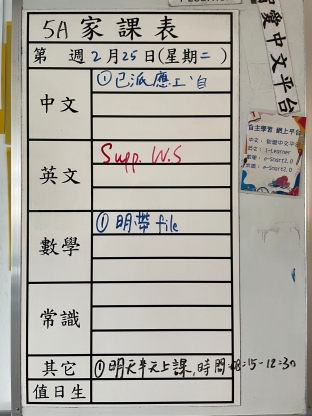 5A 家課表
第 週 2月25日(星期二)
中文 ①已派應工、自
英文 Supp. W.S
數學 ①明帶 file
常識
其它 ①明天半天上課,時間:08:15-12:30
值日生
愛中文平台
自主學習 網上平台
中文:智愛中文平台
英文:i-Learner
數學:e-Smart2.0
常識:e-Smart2.0